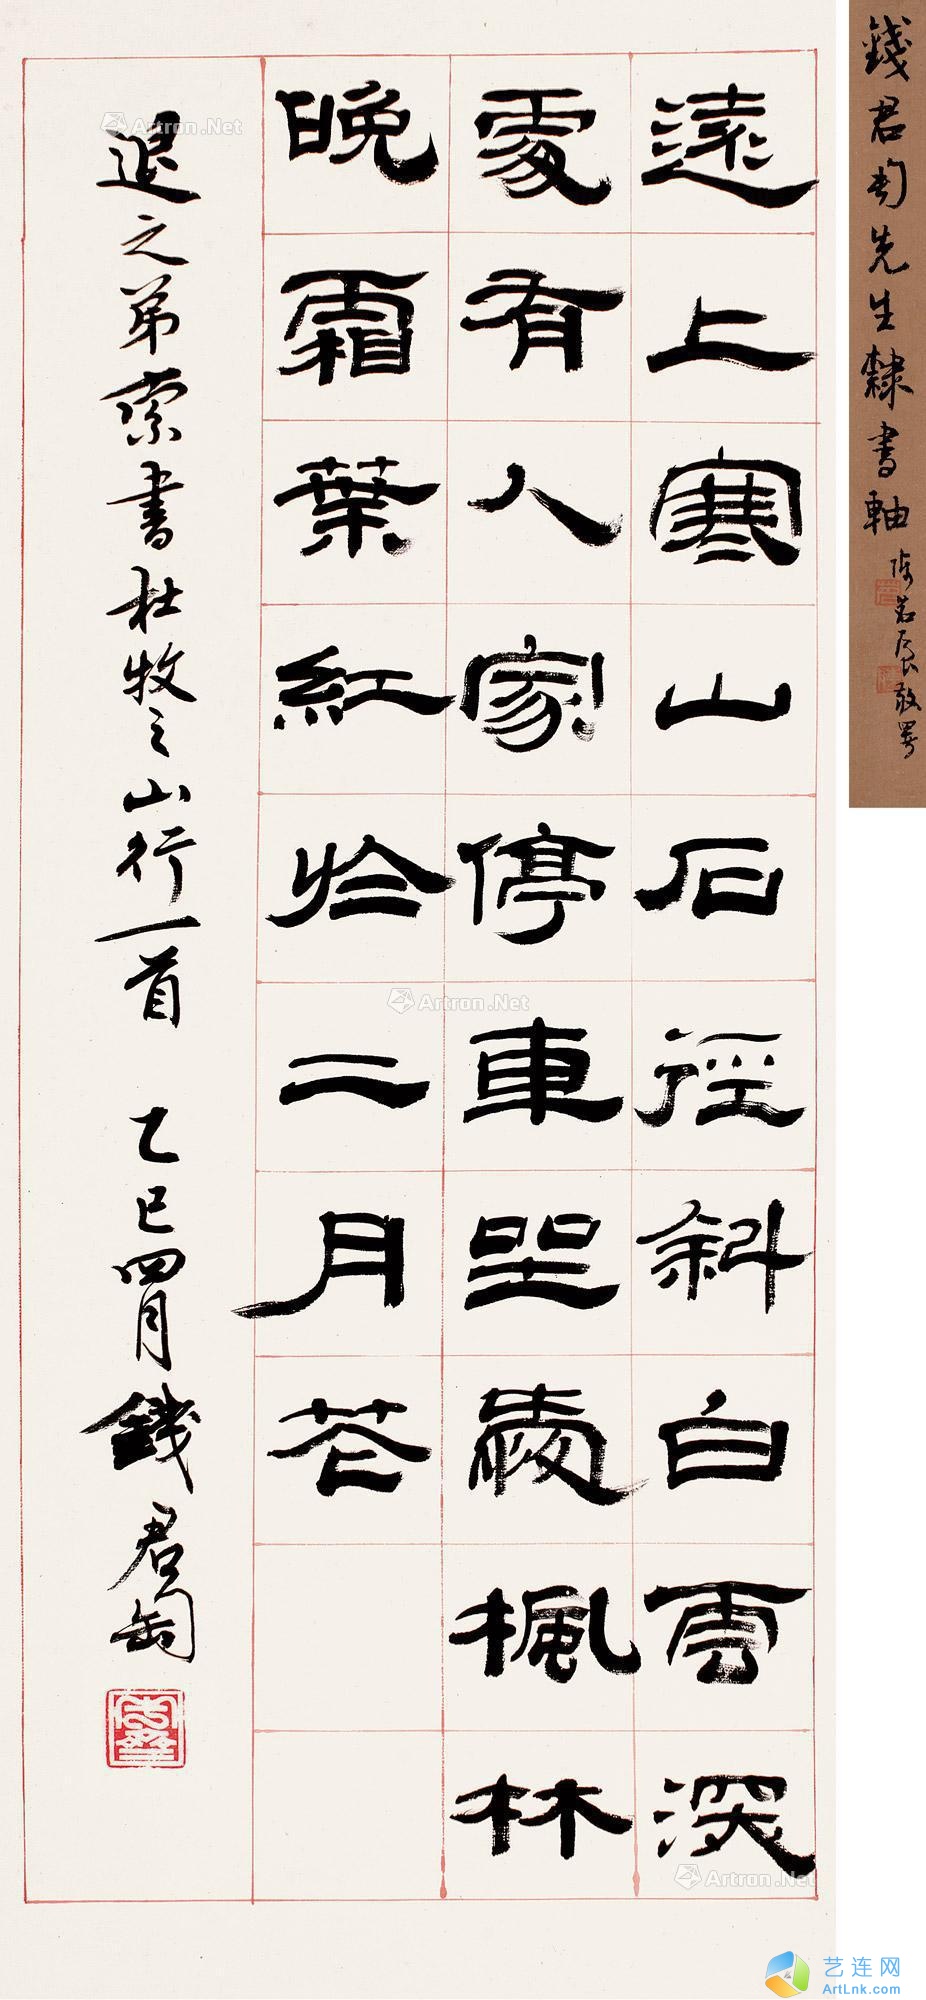 遠上寒山石徑斜白雲深
處有人家停車坐愛楓林
晚霜葉紅於二月花
退之弟索書杜牧之山行一首 乙巳四月 錢君匋
錢君匋先生隸書軸
敬署
Artron.Net
Artron.Net
Artron.Net
艺连网
ArtLnk.com